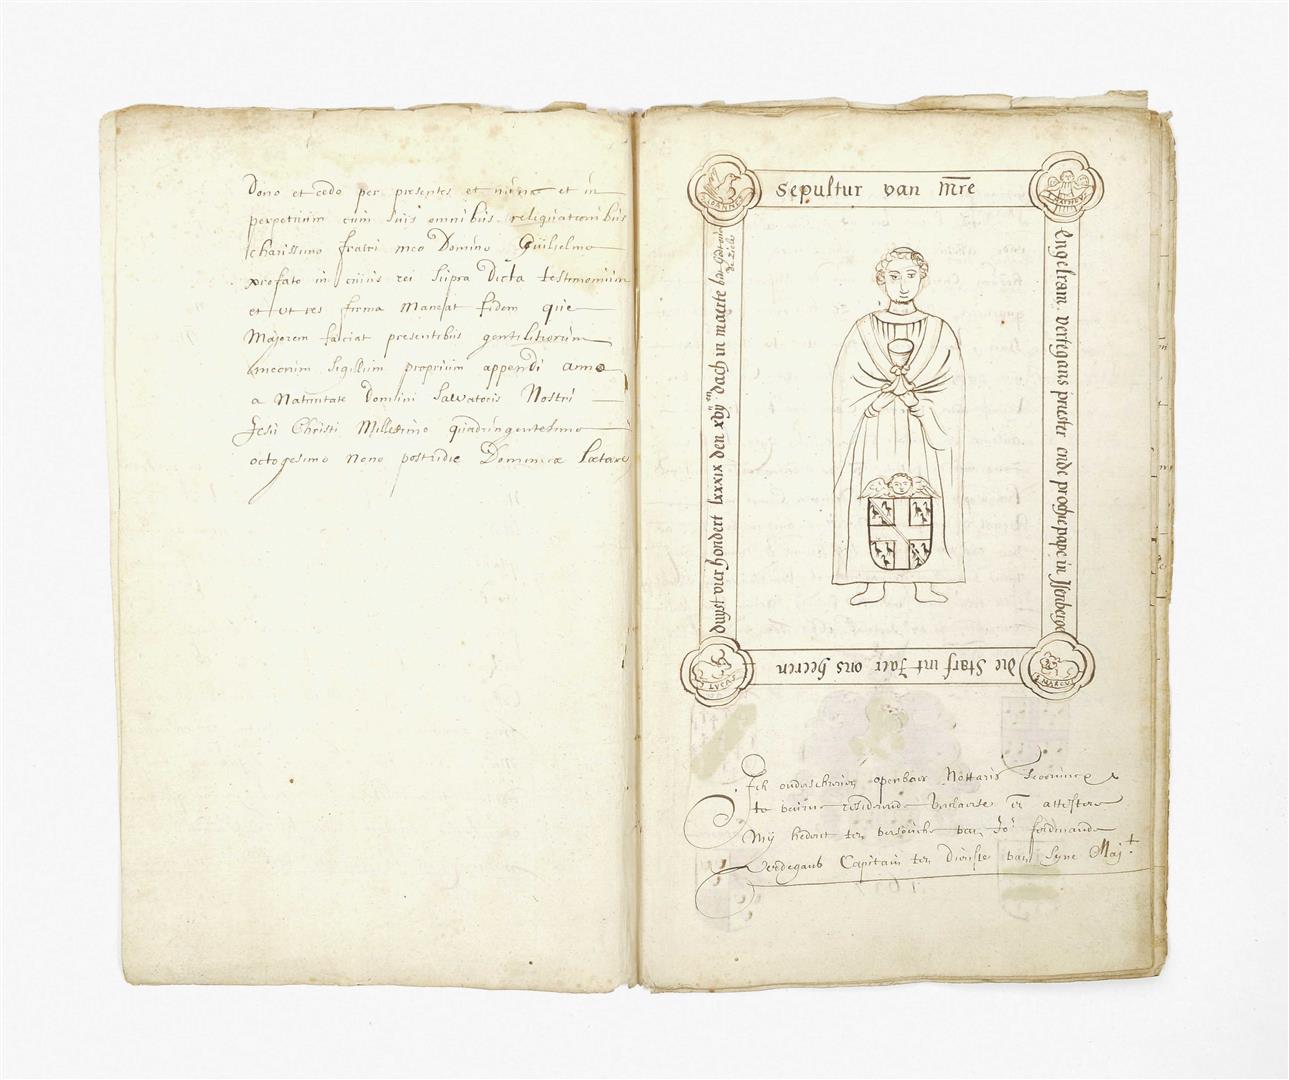 Dono et cedo per presentes et nunc et in
perpetuum cum suis omnibus reliquationibus
charissimo fratri meo Domino Guilielmo
prefato in cuius rei supra dicta testimonium
et ut res firma Maneat fidem que
Majorem faciat presentibus gentilitiorum
meorum Sigillum proprium appendi anno
a Nativitate Domini Salvatoris Nostri
Jesu Christi Millesimo quadringentesimo
octogesimo Nono postridie Dominicæ Lætare
S IOANNES
sepultur van Mre
S MATHEVS
Engelram vertegans priester ende prochiepape in Jsenberge
S MARCVS
die Starf int Jaer ons heeren
S LVCAS
duyst vier hondert lxxxix den xbij dach in maerte bidt
de ziele
Ick onderschreven openbaer Nottaris
te residerende Verclaerse en attestere
Mij hebbent ten versoucke van Jor ferdinande
Verdegans Capitain ten Dienste van Syne Maj